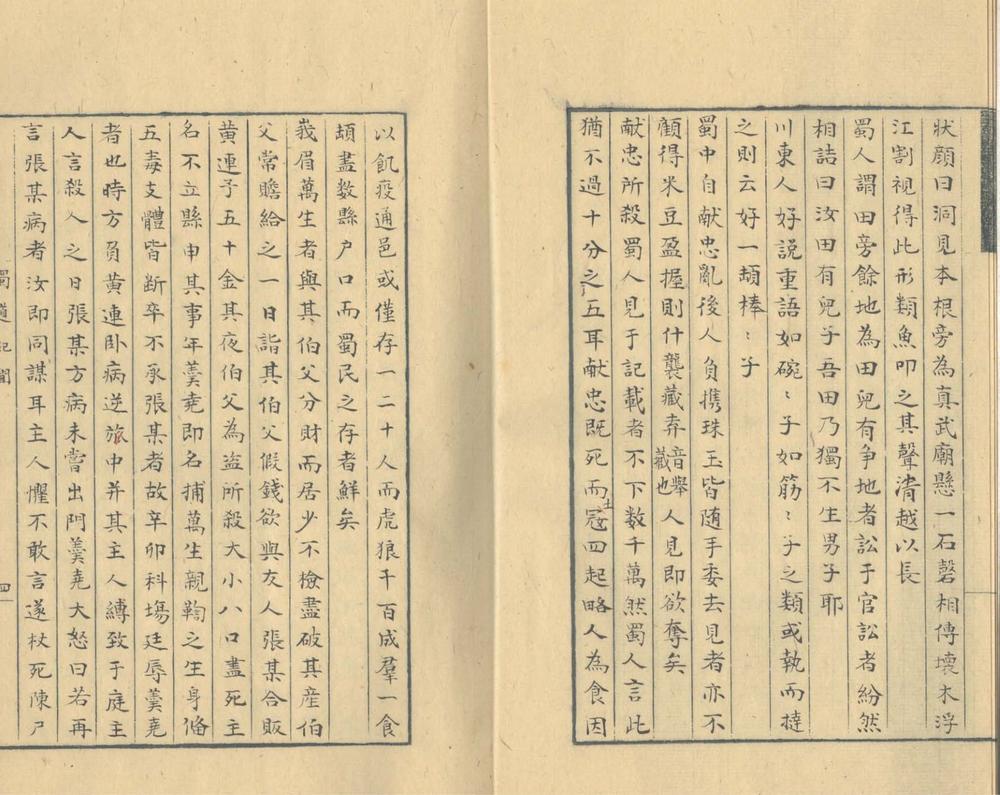 狀顔曰洞見本根旁為真武廟懸一石磬相傳壊木浮
江割視得此形類魚叩之其聲清越以長
蜀人謂田旁餘地為田兒有争地者訟于官訟者紛然
相詰曰汝田有兒子吾田乃獨不生男子耶
川東人好説重語如碗〻子如筋〻子之類或執而撻
之則云好一頓棒〻子
蜀中自献忠亂後人負携珠玉皆随手委去見者亦不
顧得米豆盈握則什襲藏弆音舉藏也人見即欲奪矣
献忠所殺蜀人見于記載者不下数千萬然蜀人言此
猶不過十分之五耳献忠既死而土冦四起略人為食因
以飢疫通邑或僅存一二十人而虎狼千百成羣一食
頓盡数縣户口而蜀民之存者鮮矣
峩眉萬生者與其伯父分財而居少不檢盡破其産伯
父常贍給之一日詣其伯父假錢欲與友人張某合販
黄連子五十金其夜伯父為盗所殺大小八口盡死主
名不立縣申其事年羮堯即名捕萬生親鞫之生身偹
五毒支體皆断卒不承張某者故辛卯科塲廷辱羮堯
者也時方負黄連卧病逆旅中并其主人縛致于庭主
人言殺人之日張某方病未嘗出門羮堯大怒曰若再
言張某病者汝即同謀耳主人懼不敢言遂杖死陳尸
蜀道記聞
四